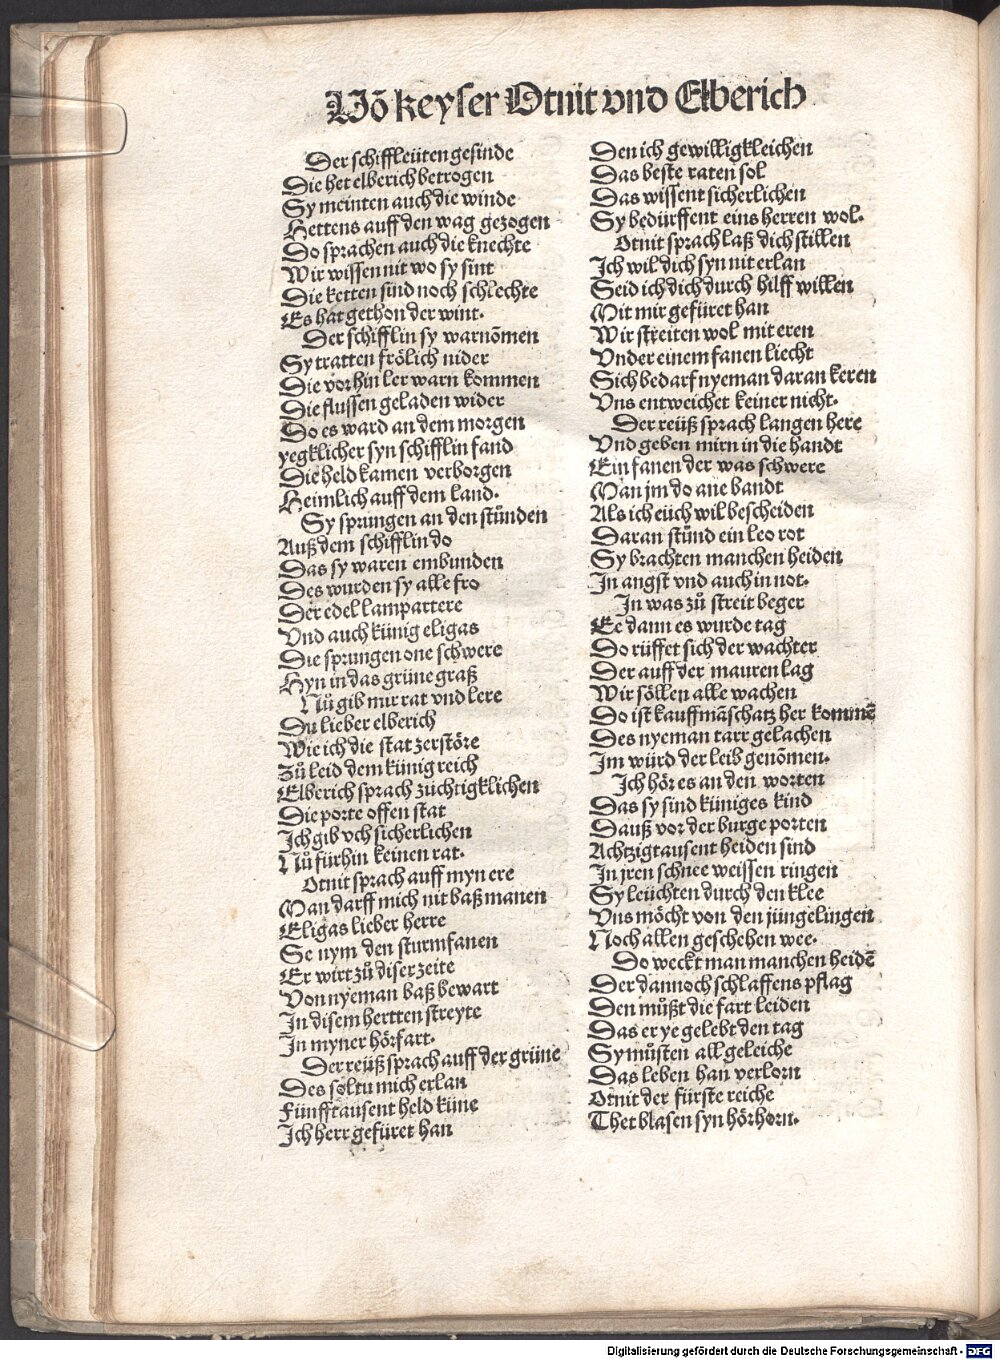 Võ keyser Otnit vnd Elberich
Der schiffleüten gesinde
Die het elberich betrogen
Sy meinten auch die winde
Hettens auff den wag gezogen
Do sprachen auch die knechte
Wir wissen nit wo sy sint
Die ketten sind noch schlechte
Es hat gethon der wint.
Der schifflin sy warnõmen
Sy tratten frölich nider
Die vorhin ler warn kommen
Die flussen geladen wider
Do es ward an dem morgen
yegklicher syn schifflin fand
Die held kamen verborgen
Heimlich auff dem land.
Sy sprungen an den stünden
Auß dem schifflin do
Das sy waren embunden
Des wurden sy alle fro
Der edel lampartere
Vnd auch künig eligas
Die sprungen one schwere
Hyn in das grüne graß
Nů gib mir rat vnd lere
Du lieber elberich
Wie ich die stat zerstöre
Zů leid dem künig reich
Elberich sprach züchtigklichen
Die porte offen stat
Ich gib vch sicherlichen
Nů fürhin keinen rat.
Otnit sprach auff myn ere
Man darff mich nit baß manen
Eligas lieber herre
Se nym den sturmfanen
Er wirt zů diser zeite
Von nyeman baß bewart
In disem hertten streyte
In myner hörfart.
Der reüß sprach auff der grüne
Des soltu mich erlan
Fünfftausent held küne
Ich herr gefüret han
Den ich gewilligkleichen
Das beste raten sol
Das wissent sicherlichen
Sy bedürffent eins herren wol.
Otnit sprach laß dich stillen
Ich wil dich syn nit erlan
Seid ich dich durch hilff willen
Mit mir gefüret han
Wir streiten wol mit eren
Vnder einem fanen liecht
Sich bedarf nyeman daran keren
Vns entweichet keiner nicht.
Der reüß sprach langen here
Vnd geben mirn in die handt
Ein fanen der was schwere
Man jm do ane bandt
Als ich eüch wil bescheiden
Daran stůnd ein leo rot
Sy brachten manchen heiden
In angst vnd auch in not.
In was zů streit beger
Ee dann es wurde tag
Do rüffet sich der wachter
Der auff der mauren lag
Wir söllen alle wachen
Do ist kauffmãschatz her kommẽ
Des nyeman tarr gelachen
Im würd der leib genõmen.
Ich hör es an den worten
Das sy sind küniges kind
Dauß vor der burge porten
Achtzigtausent heiden sind
In jren schnee weissen ringen
Sy leüchten durch den klee
Vns möcht von den jüngelingen
Noch allen geschehen wee.
Do weckt man manchen heidẽ
Der dannoch schlaffens pflag
Den můßt die fart leiden
Das er ye gelebt den tag
Sy můsten all geleiche
Das leben han verlorn
Otnit der fürste reiche
Thet blasen syn hörhorn.
Digitalisierung gefördert durch die Deutsche Forschungsgemeinschaft - DFG